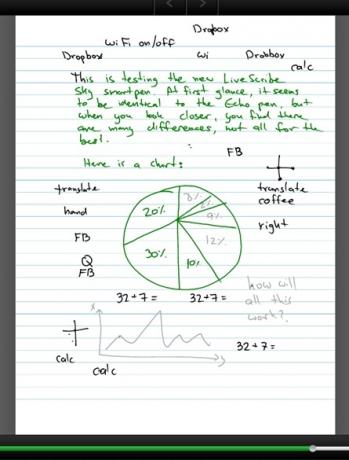 Dropbox
WiFi on/off
Dropbox Wi Drobbox
calc
This is testing the new LiveScribe
Sky smartpen. At first glance, it seems
to be identical to the Echo pen, but
when you look closer, you find there
are many differences, not all for the
best.
FB
Here is a chart:
translate
translate
coffee
hand
right
FB
Q
FB
20%
8%
9%
12%
30%
10%
32+7=
32+7=
how will
all this
work?
x
y
32+7=
calc
calc